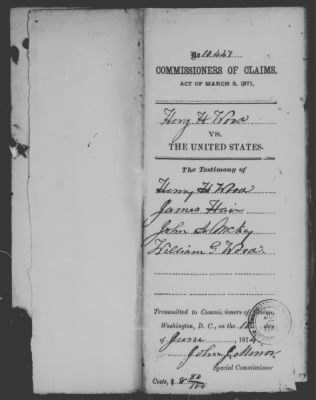 No 10.447
COMMISSIONERS OF CLAIMS.
ACT OF MARCH 3, 1871.
Henry H Wood
VS.
THE UNITED STATES.
The Testimony of
Henry H Wood
James Hair
John
William G. Wood
Transmitted to Commissioners of Claims,
Washington, D. C., on the day
of June 187
John J.
Special Commissioner
Costs, $